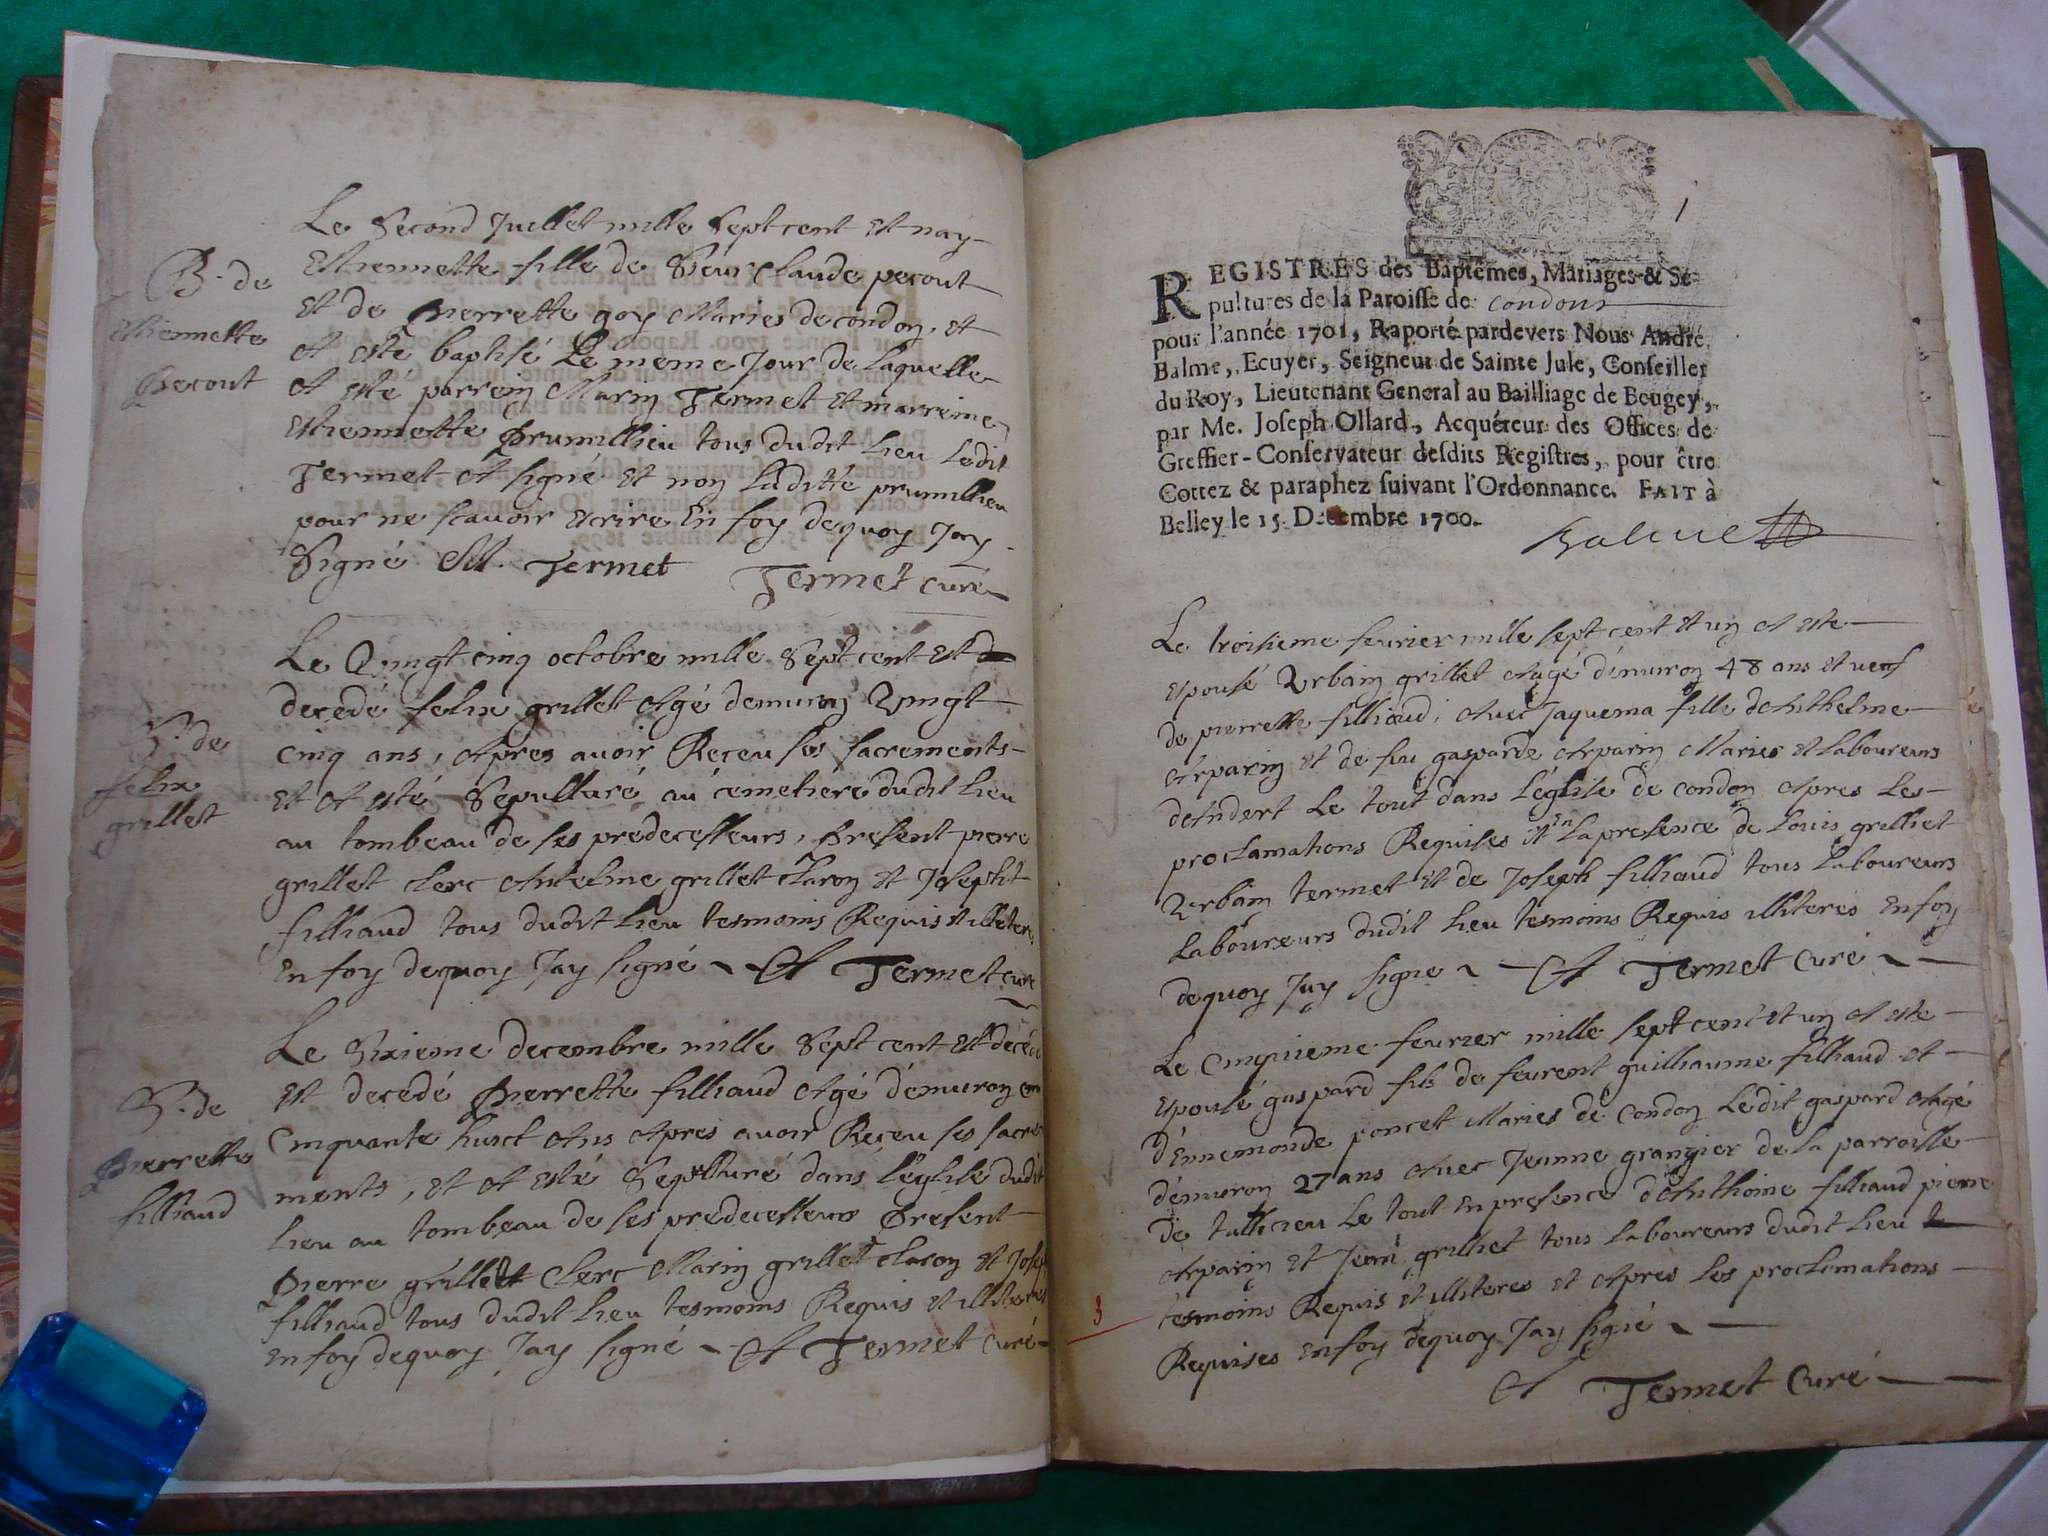 Le Second Juillet mille Sept cent Est nay
Estiennette fille de Sieur Claude pecout
Et de pierrette goy Maries de condon, et
A esté baptisé Le meme Jour de Laquelle
A esté parrein Marin Termet Et marreine
Estiennette prumillieu tous dudit Lieu Ledit
Termet A signé Et non Laditte prumillieu
pour ne scavoir Escrire En foy de quoy Jay
Signé M. Termet Termet curé
B. de
Estiennette
pecout
Le Vingt cinq octobre mille Sept cent Est
decedé felix grillet Agé demuron Vingt
cinq ans, Apres avoir Receu ses sacrements
Et A esté Sepulturé au cemetiere dudit Lieu
au tombeau de ses predecesseurs, present pierre
grillet clerc Antelme grillet claron Et Joseptit
filliaud tous dudit Lieu tesmoins Requis Et illiteres
En foy dequoy Jay signé A Termet curé
S. de
felix
grillet
Le Sixieme decembre mille Sept cent Est decedé
Est decedé pierrette filliaud Agé demuron
cinquante huict Ans Apres avoir Receu ses sacre
ments, Et A esté Sepulturé dans l'eglise dudit
Lieu au tombeau de ses predecesseurs present
pierre grillet clerc Marin grillet claron Et Joseph
filliaud tous dudit Lieu tesmoins Requis Et illiteres
En foy dequoy Jay signé A Termet curé
S. de
pierrette
filliaud
1
REGISTRES des Baptêmes, Mariages & Se-
pultures de la Paroisse de condon
pour l'année 1701, Raporté pardevers Nous André
Balme, Ecuyer, Seigneur de Sainte Jule, Conseiller
du Roy, Lieutenant General au Bailliage de Beugey,
par Me. Joseph Ollard, Acquéreur des Offices de
Greffier-Conservateur desdits Registres, pour être
Cottez & paraphez suivant l'Ordonnance. FAIT à
Belley le 15. Decembre 1700.
Balme
Le troisieme fevrier mille sept cent Et un A esté
Espousé Urbain grillet Aagé d'emuron 48 ans Et veuf
de pierrette filliaud, Avec Jaquema fille d'Anthelme
Arparin Et de feu gasparde Arparin Maries Et Laboureurs
d'Andert Le tout dans L'eglise de condon Apres Les
proclamations Requises Et En La presence de Louis grilliet
Urbain termet Et de Joseph filliaud tous Laboureurs
Laboureurs dudit Lieu tesmoins Requis illiteres En foy
dequoy Jay signé A Termet curé
Le cinquieme fevrier mille sept cent Et un A esté
Espousé gaspard fils de feurent guilliaume filliaud Et
d'Ennemonde poncet Maries de condon Ledit gaspard Aagé
d'emuron 27 ans Avec Jeanne grangier de la parroisse
de Le tout En presence d'Anthoine filliaud pierre
Arparin Et Jean grilliet tous Laboureurs dudit Lieu
tesmoins Requis Et illiteres Et Apres Les proclamations
Requises En foy dequoy Jay signé
A Termet curé
3